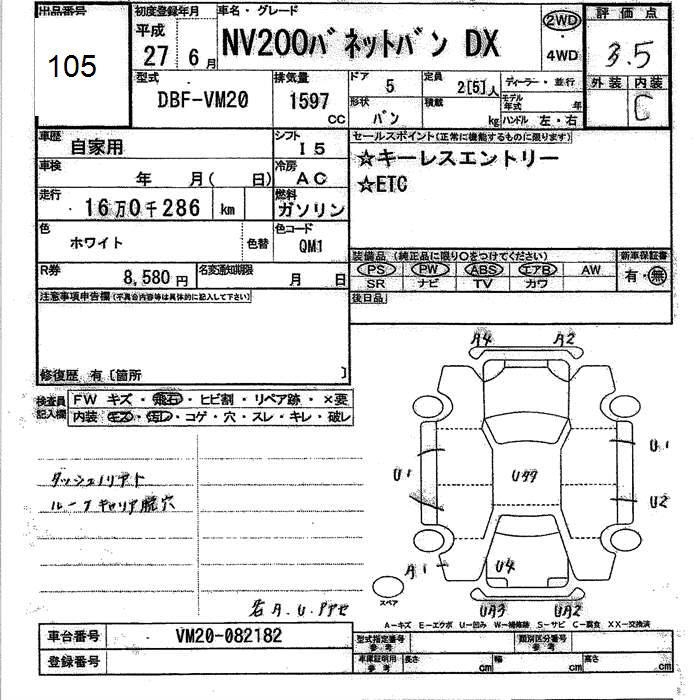 出品番号
105
初度登録年月
平成
27 6月
車名・グレード
NV200バネットバン DX
2WD
・
4WD
評価点
3.5
外装 内装
C
型式
DBF-VM20
排気量
1597
CC
ドア
5
定員
2[5]人
ディーラー・並行
形状
バン
積載
kg
モデル年式
年
ハンドル 左・右
車歴
自家用
シフト
I5
セールスポイント(正常に機能するものに限ります)
☆キーレスエントリー
☆ETC
車検
年 月( 日)
冷房
AC
走行
16万0千286 km
燃料
ガソリン
色
ホワイト
色替
色コード
QM1
装備品 (純正品に限り○をつけてください)
新車保証書
PS PW ABS エアB AW
有・無
SR ナビ TV カワ
R券
8,580円
名変通知期限
月 日
後日品
注意事項申告欄(不具合内容等は具体的に記入して下さい)
修復歴 有〔箇所 〕
検査員
記入欄
FW キズ・飛石・ヒビ割・リペア跡・×要
内装 キズ・汚レ・コゲ・穴・スレ・キレ・破レ
ルーフキャリア脱穴
A4 A2
U1
U1
U2
A1
U4
UA3 UA2
スペア
A-キズ E-エクボ U-凹み W-補修跡 S-サビ C-腐食 XX-交換済
車台番号
VM20-082182
登録番号
型式指定番号
参考
類別区分番号
参考
車庫証明用
参考
長さ cm
幅 cm
高さ cm